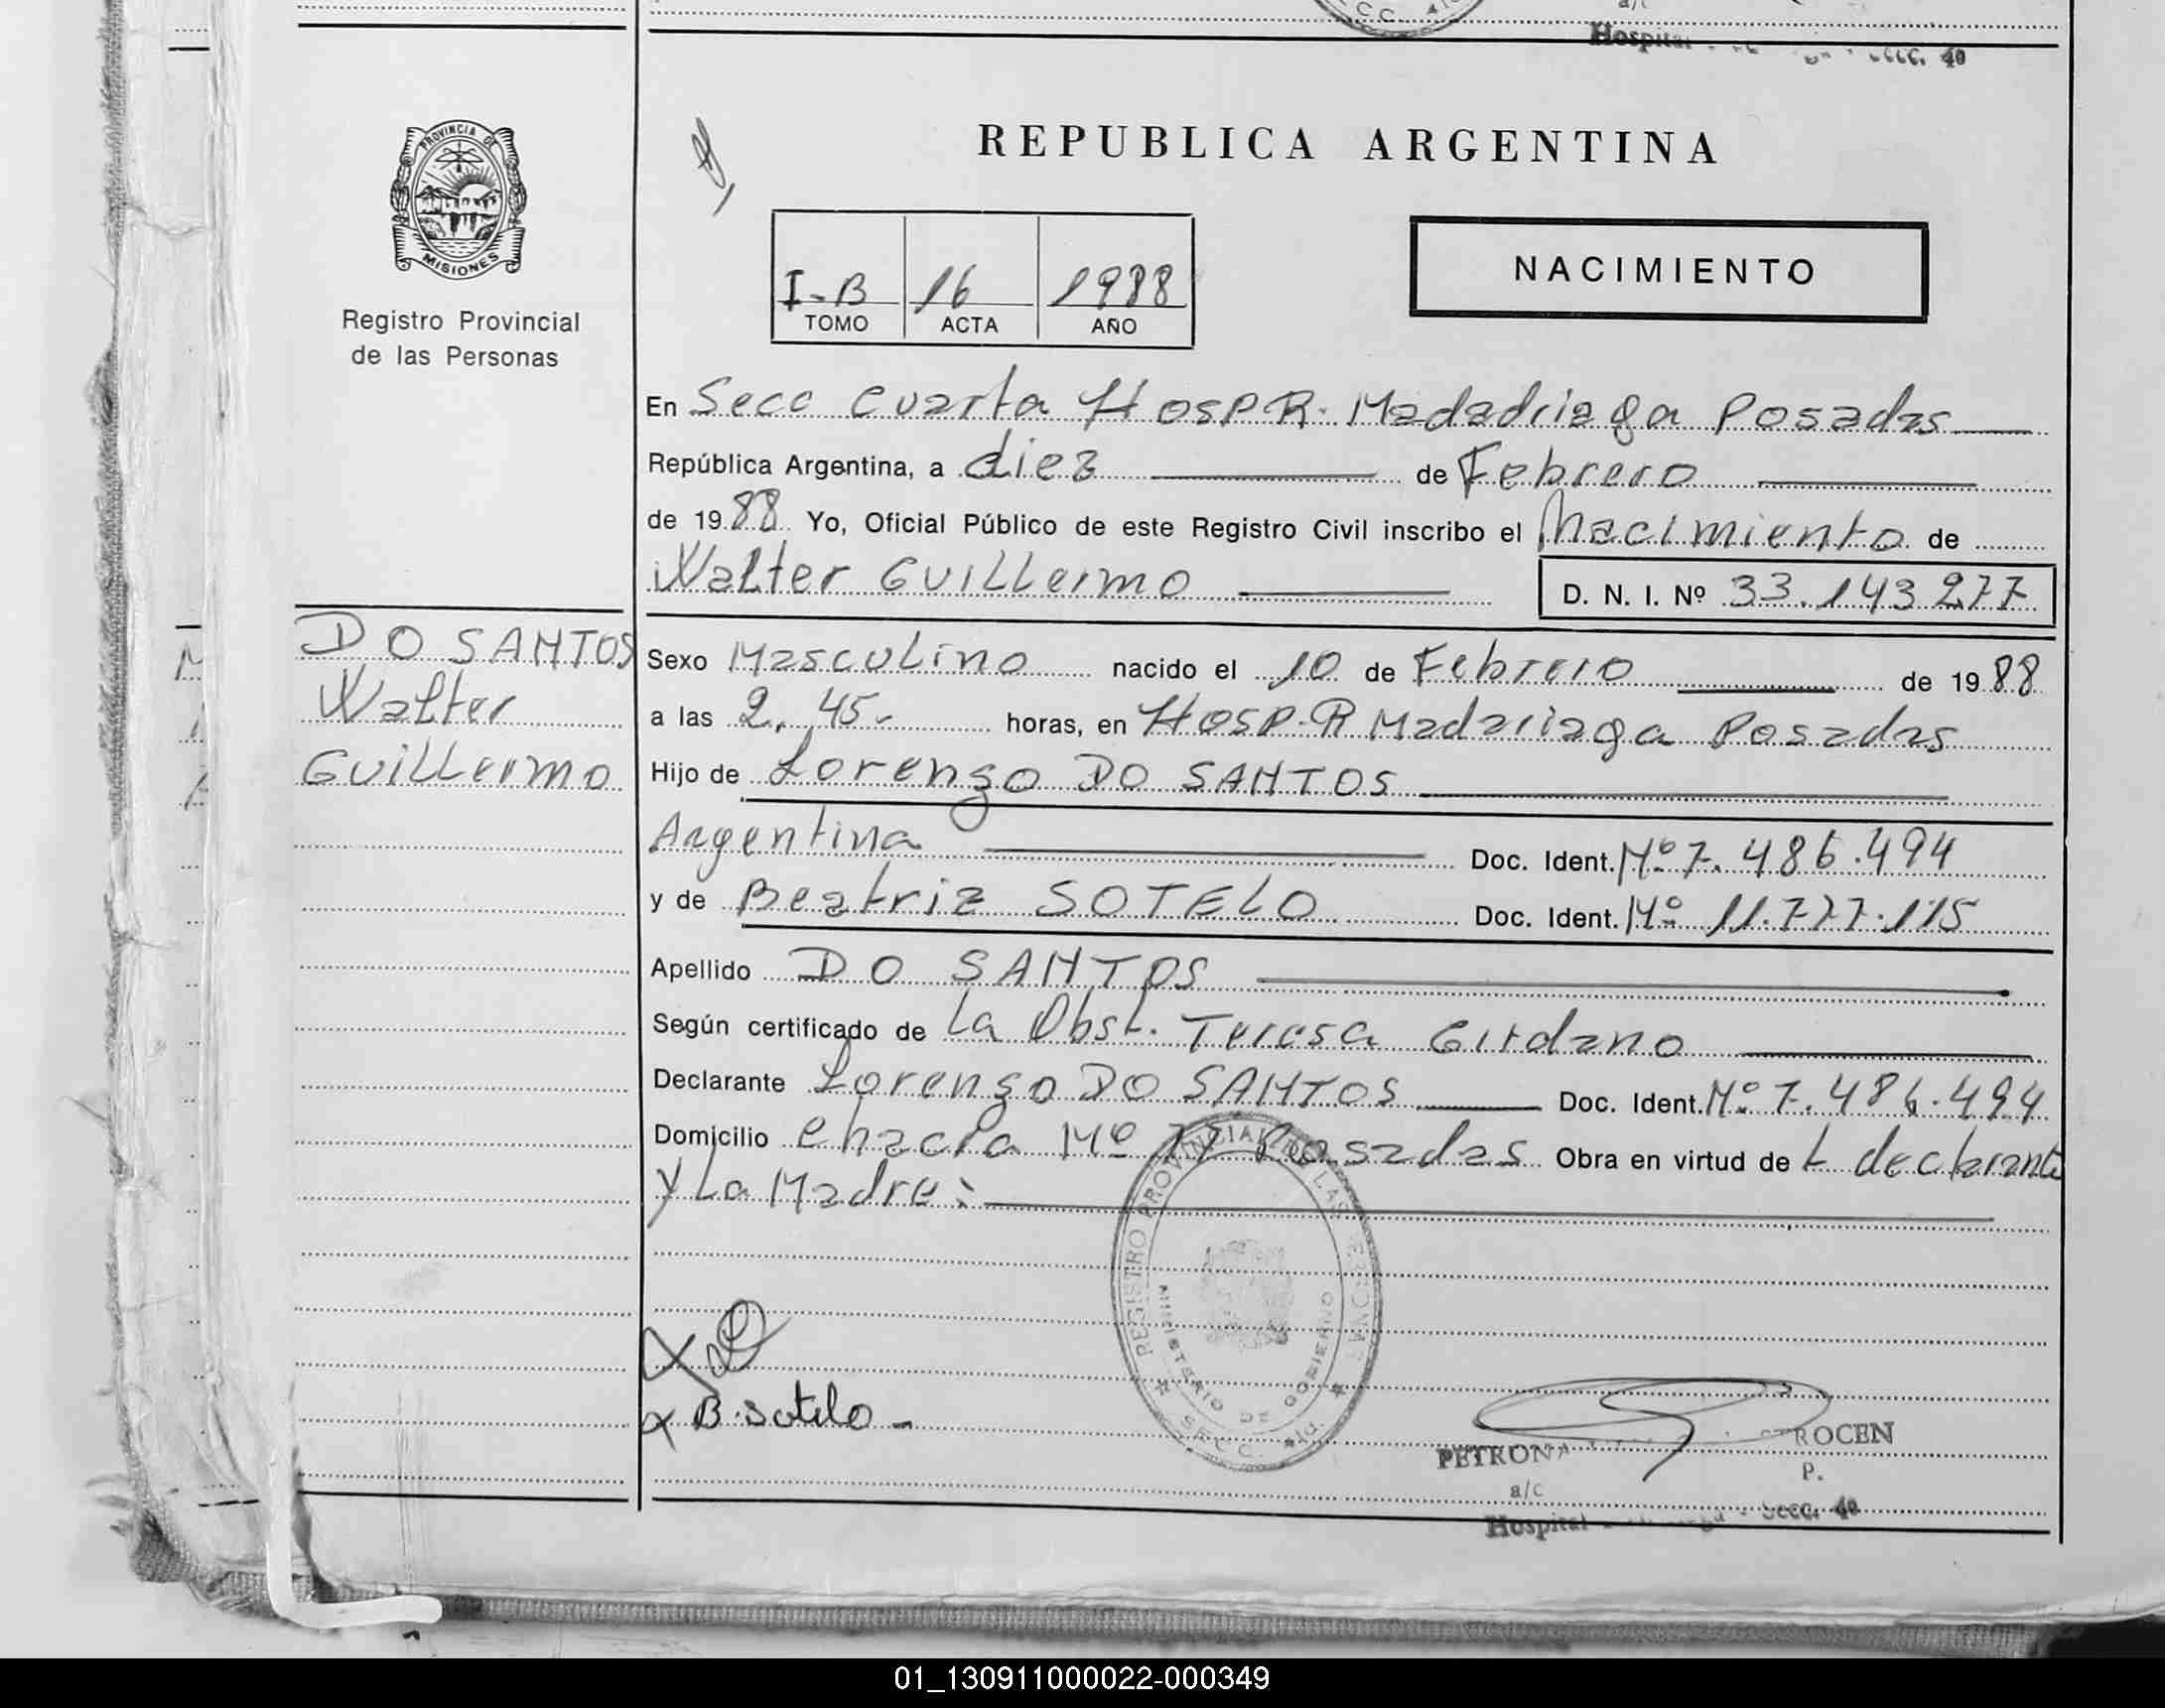 Hospital
Secc. 40
PROVINCIA DE
MISIONES
Registro Provincial
de las Personas
REPUBLICA ARGENTINA
NACIMIENTO
I-B 16 1988
TOMO ACTA AÑO
En Secc Cuarta Hosp R. Madadriaga Posadas
República Argentina, a diez de Febrero
de 1988 Yo, Oficial Público de este Registro Civil inscribo el Nacimiento de
Walter Guillermo D. N. I. Nº 33.143277
DO SANTOS
Walter
Guillermo
Sexo Masculino nacido el 10 de Febrero de 1988
a las 2,45- horas, en Hosp. R Madariaga Posadas
Hijo de Lorenzo DO SANTOS
Argentina Doc. Ident. Nº 7.486.494
y de Beatriz SOTELO Doc. Ident. Nº 11.777.115
Apellido DO SANTOS
Según certificado de La Obst. Teresa
Declarante Lorenzo DO SANTOS Doc. Ident. Nº 7.486.494
Domicilio Chacra Nº Posadas Obra en virtud de L declarante
y La Madre:
REGISTRO PROVINCIAL DE LAS PERSONAS
MINISTERIO DE GOBIERNO
SECC. 4ta
B. Sotelo -
PETRONA ROCEN
a/c P.
Hospital Secc. 40
01_130911000022-000349